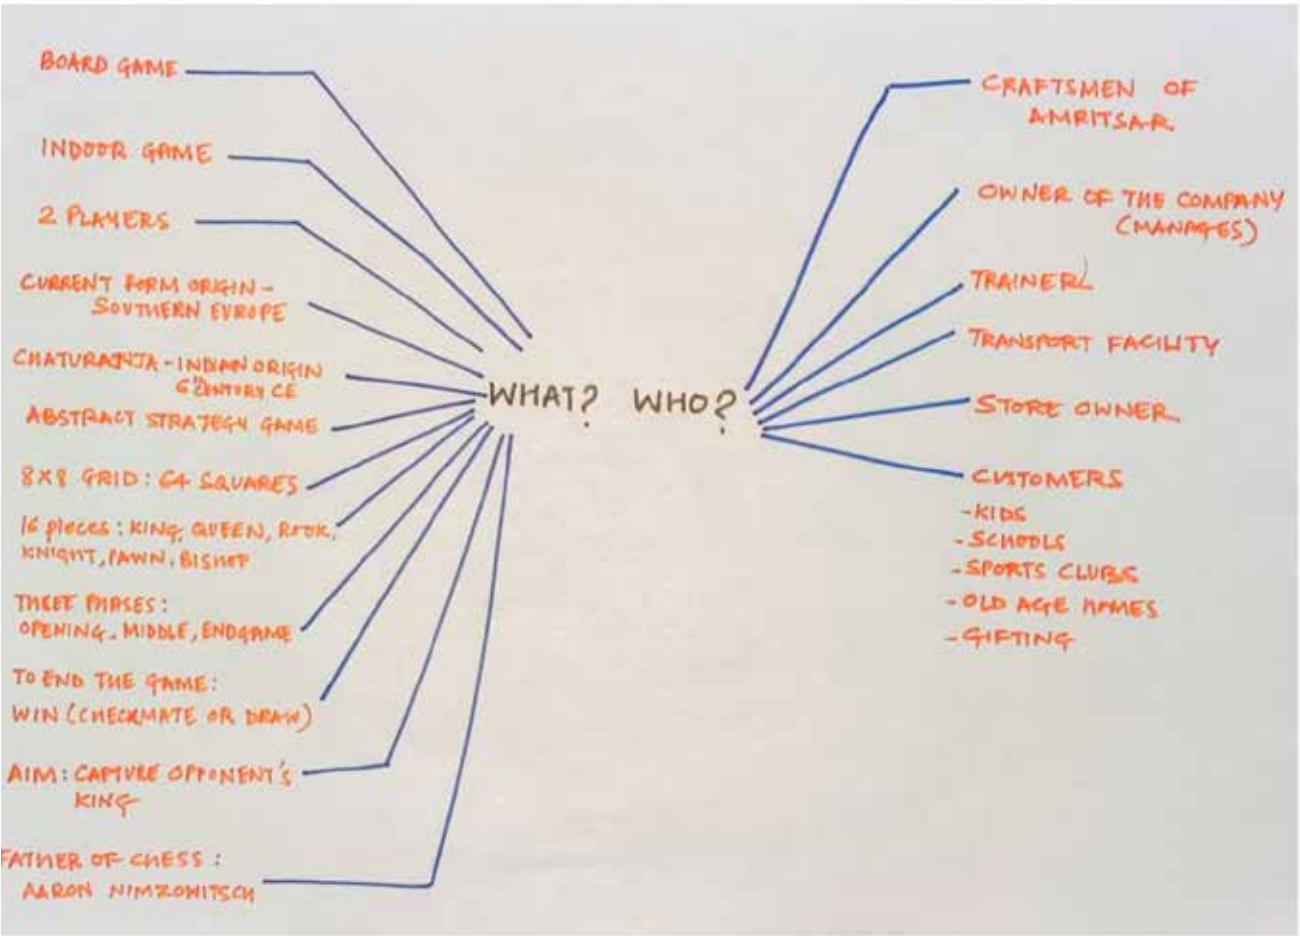 BOARD GAME
INDOOR GAME
2 PLAYERS
CURRENT FORM ORIGIN -
SOUTHERN EUROPE
CHATURANJA - INDIAN ORIGIN
6th CENTURY CE
ABSTRACT STRATEGY GAME
8X8 GRID : 64 SQUARES
16 pieces : KING, QUEEN, ROOK,
KNIGHT, PAWN, BISHOP
THREE PHASES :
OPENING, MIDDLE, ENDGAME
TO END THE GAME :
WIN (CHECKMATE OR DRAW)
AIM : CAPTURE OPPONENT'S
KING
FATHER OF CHESS :
AARON NIMZOWITSCH
WHAT? WHO?
CRAFTSMEN OF
AMRITSAR
OWNER OF THE COMPANY
(MANAGES)
TRAINER
TRANSPORT FACILITY
STORE OWNER
CUSTOMERS
- KIDS
- SCHOOLS
- SPORTS CLUBS
- OLD AGE HOMES
- GIFTING